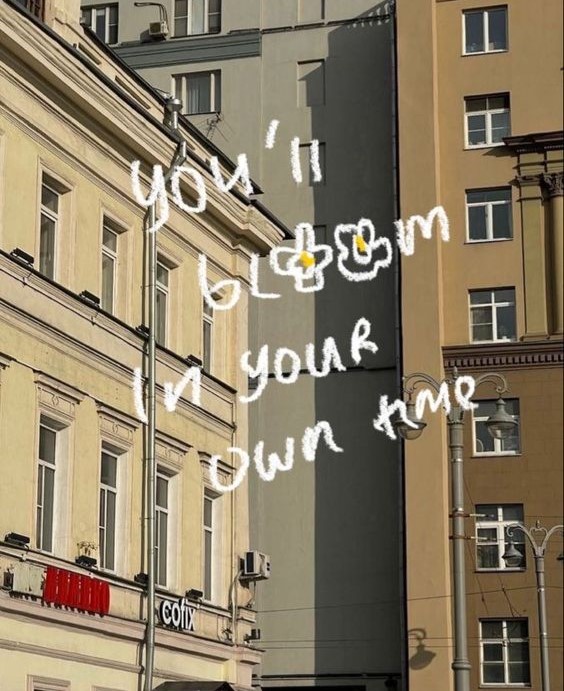 you'll
bloom
in your
own time
cofix